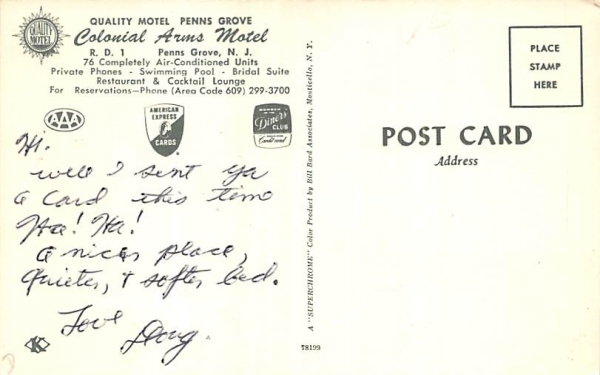 QUALITY MOTEL
QUALITY MOTEL PENNS GROVE
Colonial Arms Motel
R. D. 1 Penns Grove, N. J.
76 Completely Air-Conditioned Units
Private Phones - Swimming Pool - Bridal Suite
Restaurant & Cocktail Lounge
For Reservations—Phone (Area Code 609) 299-3700
AAA
AMERICAN EXPRESS
CARDS
Diners' CLUB
Hi.
well I sent ya
a card this time
Ha! Ha!
a nicer place,
Quieter, & softer bed.
Love
Doug.
K
D
A "SUPERCHROME" Color Product by Bill Bard Associates, Monticello, N. Y.
78199
PLACE
STAMP
HERE
POST CARD
Address